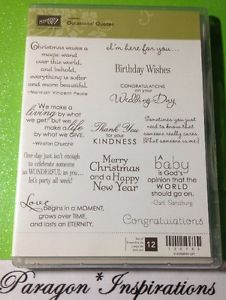 Occasional Quotes
Christmas waves a
magic wand
over this world,
and behold,
everything is softer
and more beautiful.
I'm here for you...
Birthday Wishes
CONGRATULATIONS
on your
Wedding Day
We make a
living by what
we get, but we
make a life
by what we give.
-Winston Churchill
Thank You
for your
KINDNESS
Sometimes you just
need to know that
someone really cares.
(That someone is me!)
One day just isn't enough
to celebrate someone
as WONDERFUL as you...
let's party all week!
Merry
Christmas
and a Happy
New Year
A
baby
is God's
opinion that the
WORLD
should go on.
-Carl Sandburg
Love
begins in a moment,
grows over time,
and lasts an eternity.
Congratulations
12
Paragon * Inspirations